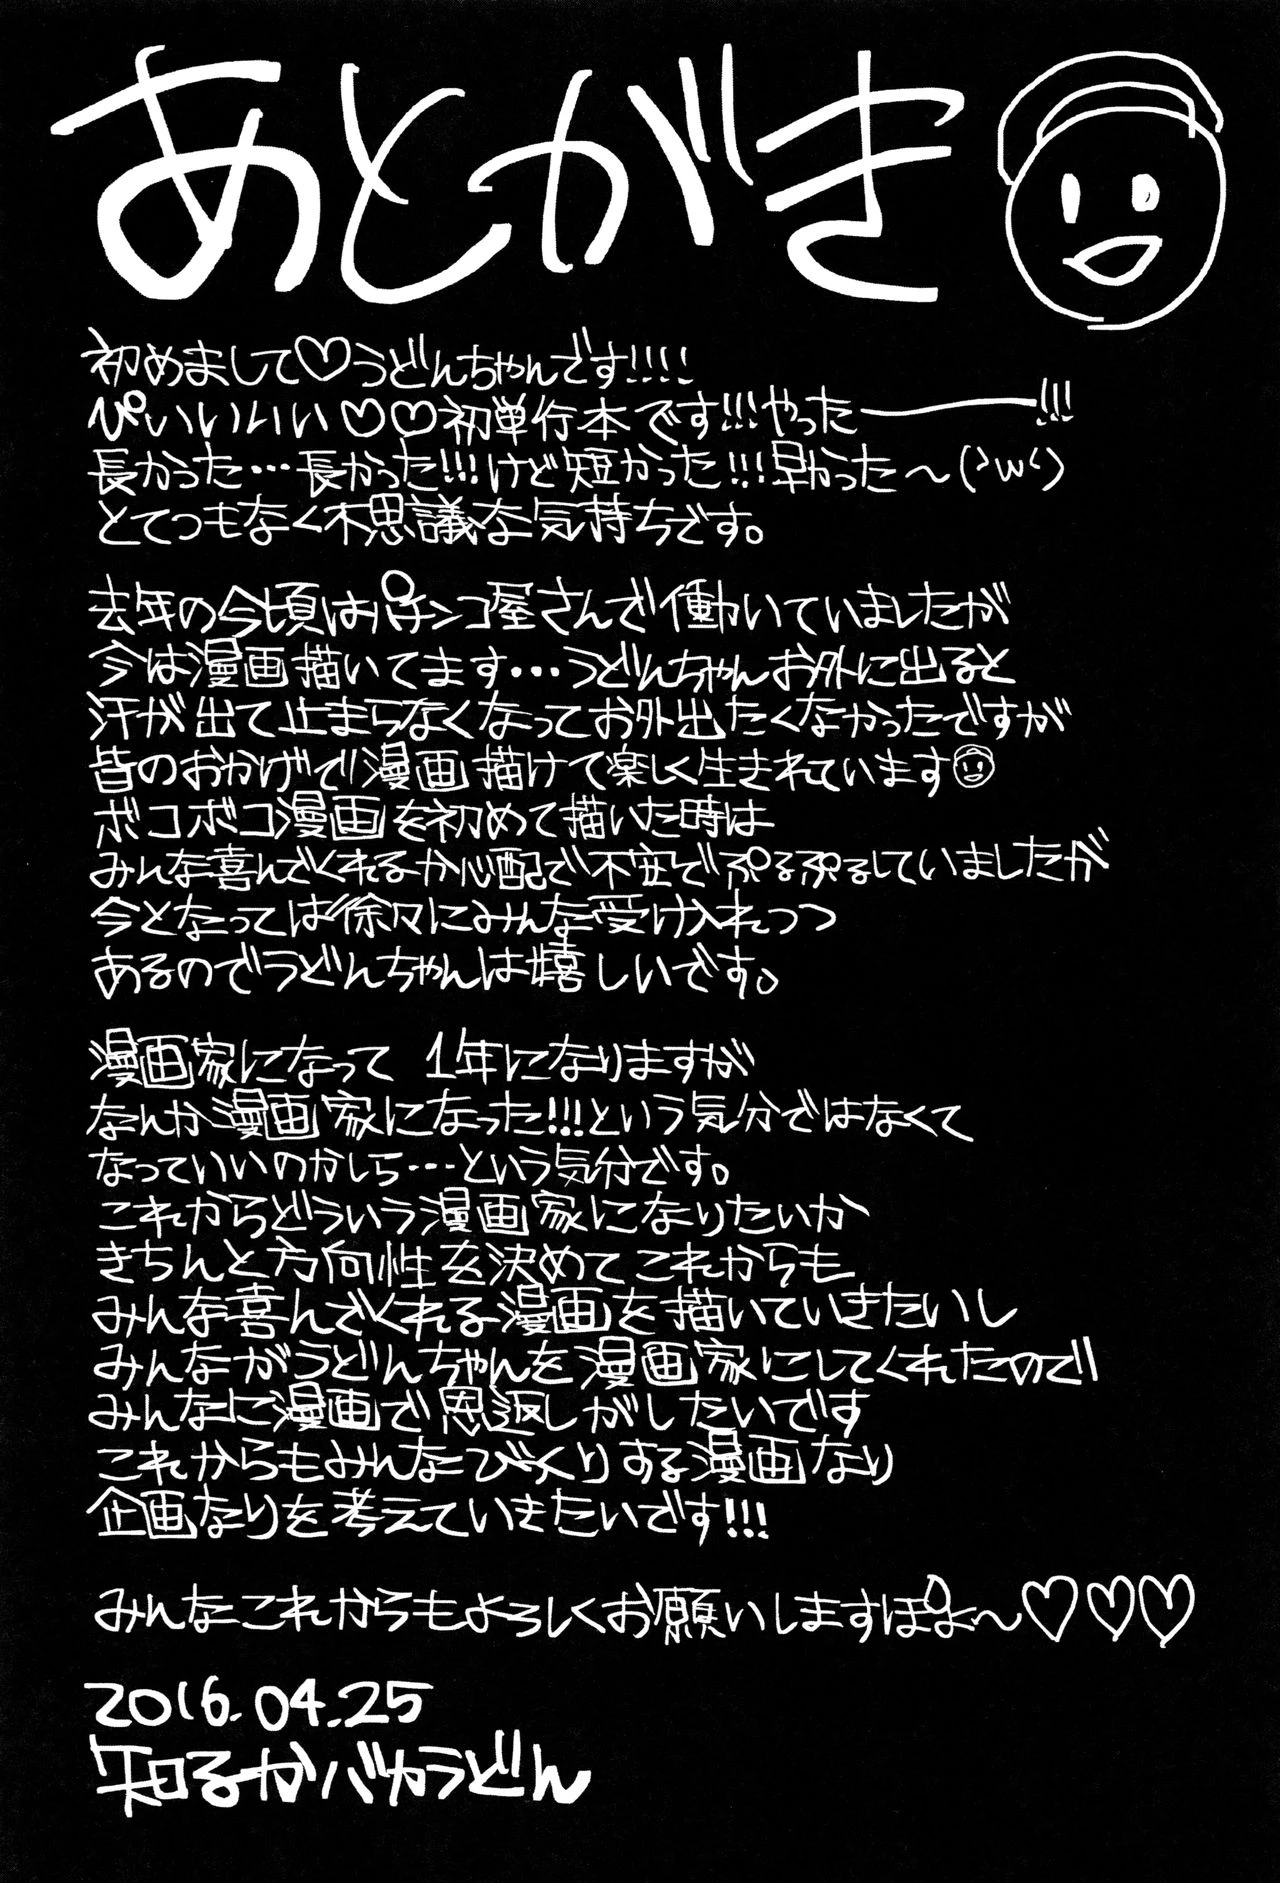 あとがき
初めまして♡うどんちゃんです!!!!
ぴぃいいい♡♡初単行本です!!!やった━━━!!!
長かった…長かった!!!けど短かった!!!早かった〜(›´ω`‹)
とてつもなく不思議な気持ちです。
去年の今頃はパチンコ屋さんで働いていましたが
今は漫画描いてます…うどんちゃんお外に出ると
汗が出て止まらなくなってお外出たくなかったですが
皆のおかげで漫画描けて楽しく生きれています
ボコボコ漫画を初めて描いた時は
みんな喜んでくれるか心配で不安でぷるぷるしていましたが
今となっては徐々にみんな受け入れつつ
あるのでうどんちゃんは嬉しいです。
漫画家になって 1年になりますが
なんか漫画家になった!!!という気分ではなくて
なっていいのかしら…という気分です。
これからどういう漫画家になりたいか
きちんと方向性を決めてこれからも
みんな喜んでくれる漫画を描いていきたいし
みんながうどんちゃんを漫画家にしてくれたので
みんなに漫画で恩返しがしたいです
これからもみんなびっくりする漫画なり
企画なりを考えていきたいです!!!
みんなこれからもよろしくお願いしますぽよ〜♡♡♡
2016.04.25
知るかバカうどん